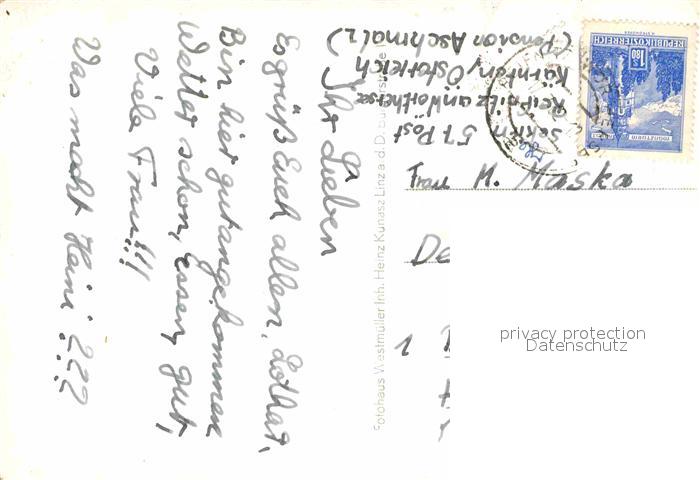 Ihr Lieben
Es grüß Euch allen, Lothar,
Bin hier gut angekommen
Wetter schön, Essen, gut,
Viele Frau!!!
Was macht Heini ???
5 1. Post
Reifnitz am Wörthersee
Kärnten, Österreich
(Pension Aschmalz)
Fotohaus Westmüller Inh. Heinz Kunasz Linz a.d.D.
REPUBLIK ÖSTERREICH
1.80
Frau M. Maska
De
1
privacy protection
Datenschutz